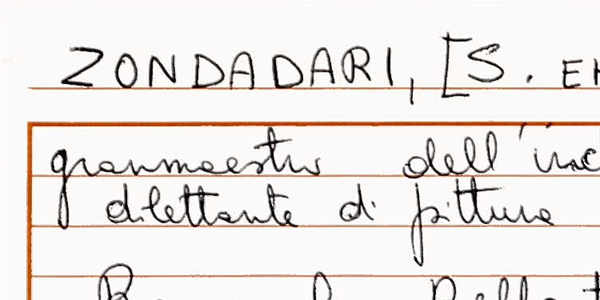 ZONDADARI, [S.
granmaestro dell'
dilettante di pittura